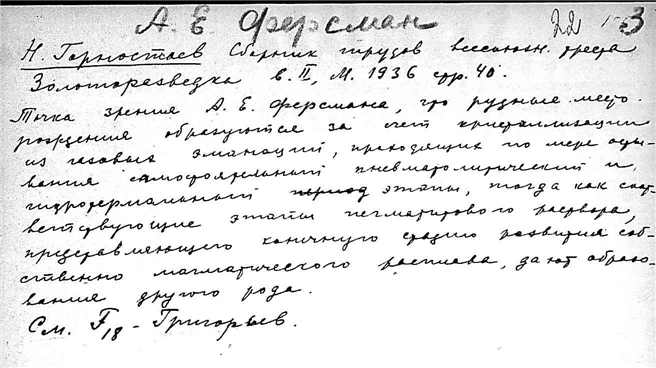 А. Е. Ферсман 22 3
Н. Горностаев Сборник трудов всесоюзн. треста
Золоторазведка в. II, М. 1936 стр. 40.
Точка зрения А. Е. Ферсмана, что рудные место-
рождения образуются за счет кристаллизации
из газовых эманаций, проходящих по мере осты-
вания самостоятельный пневматолитический и
гидротермальный период этапы, тогда как соот-
ветствующие этапы пегматитового раствора,
представляющего конечную стадию развития соб-
ственно магматического расплава, дают образо-
вание другого рода.
См. F18 - Григорьев.